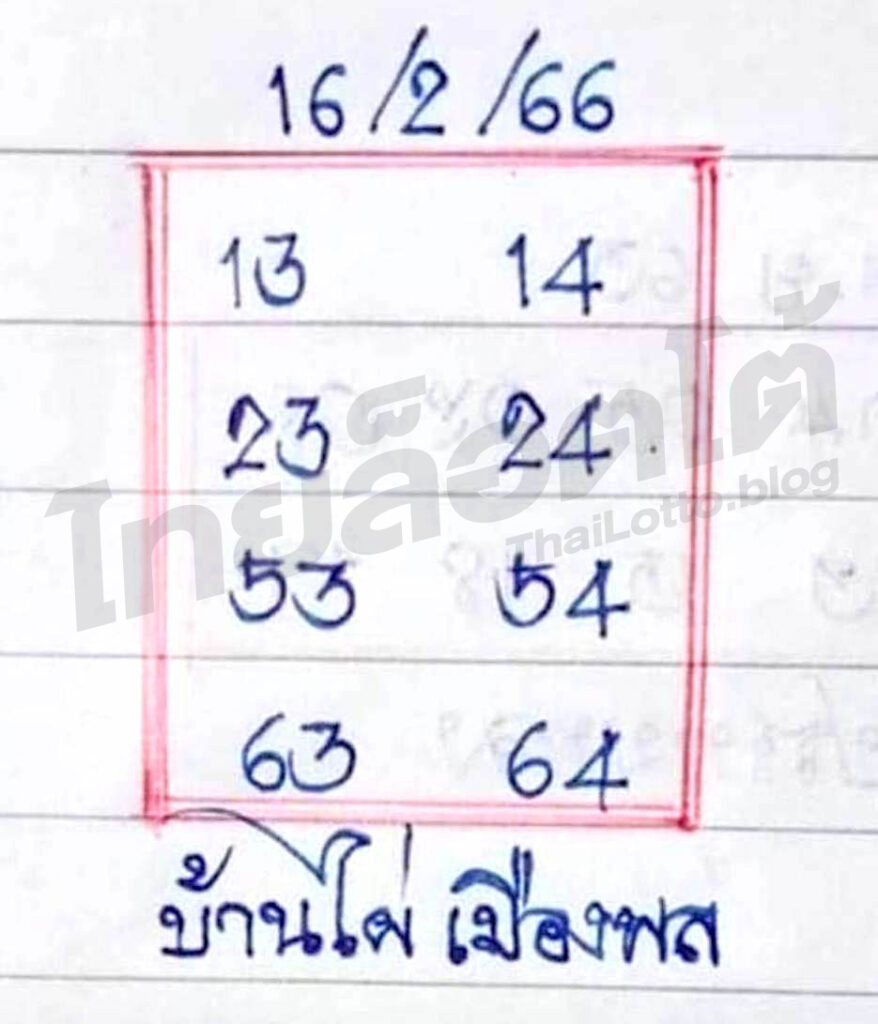 16/2/66
13 14
23 24
ไทยล็อตโต้
ThaiLotto.blog
53 54
63 64
บ้านไผ่ เมืองพล